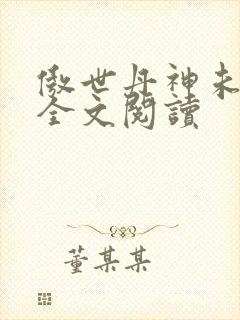 傲世丹神未
全文閱讀
董某某